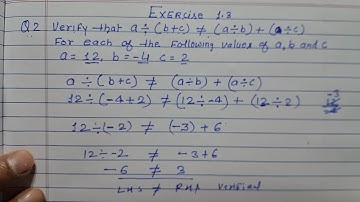 EXERCISE 1.3
Q.2 Verify that a ÷ (b+c) ≠ (a÷b) + (a÷c)
For each of the following values of a, b and c
a = 12, b = -4 c = 2
a ÷ (b+c) ≠ (a÷b) + (a÷c)
12 ÷ (-4+2) ≠ (12÷-4) + (12÷2)
12 ÷ (-2) ≠ (-3) + 6
12 ÷ -2 ≠ -3+6
-6 ≠ 3
LHS ≠ RHS verified